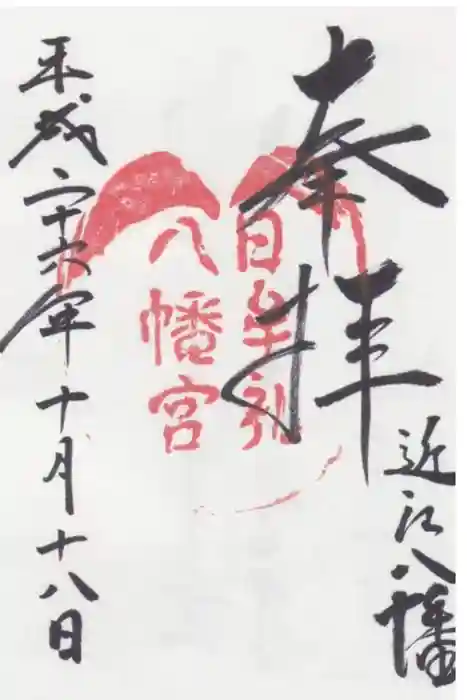 奉拝
近江八幡
日牟礼
八幡宮
平成二十六年十月十八日